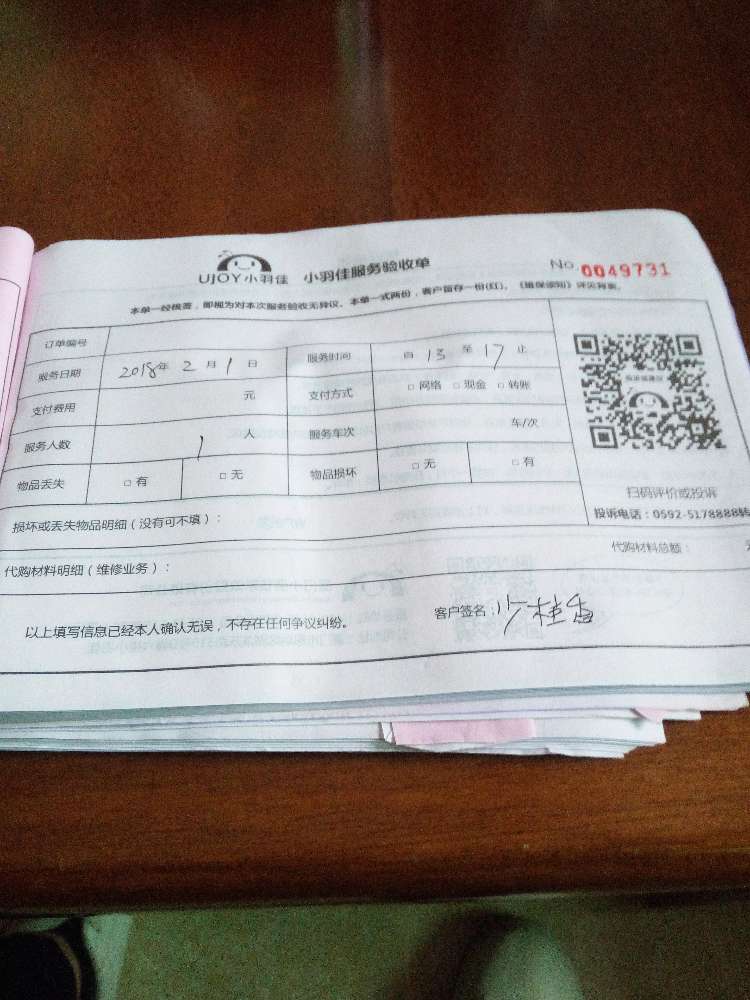 UJOY小羽佳 小羽佳服务验收单 No. 0049731
本单一经核签，即视为对本次服务验收无异议。本单一式两份，客户留存一份(红)。《组保须知》详见背面。
订单编号
服务日期 2018年 2 月 1 日 服务时间 自 13 至 17 止
支付费用 元 支付方式 □ 网络 □ 现金 □ 转账
服务人数 1 人 服务车次 车/次
物品丢失 □ 有 □ 无 物品损坏 □ 无 □ 有
扫码评价或投诉
投诉电话：0592-5178888转
损坏或丢失物品明细（没有可不填）：
代购材料明细（维修业务）： 代购材料总额：
以上填写信息已经本人确认无误，不存在任何争议纠纷。 客户签名：